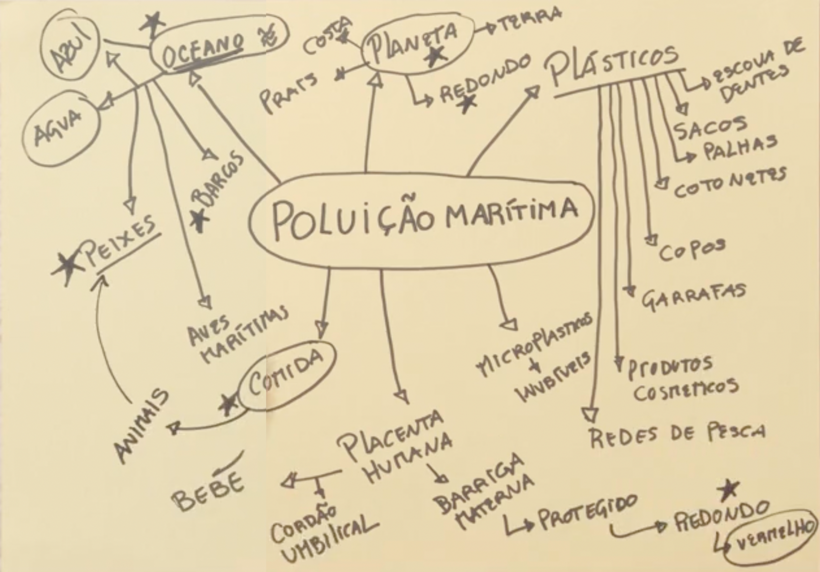 AZUL
OCEANO
COSTA
PLANETA
TERRA
PRAIS
REDONDO
PLÁSTICOS
ESCOVA DE
DENTES
ÁGUA
SACOS
PALHAS
BARCOS
COTONETES
POLUIÇÃO MARÍTIMA
PEIXES
COPOS
GARRAFAS
AVES
MARÍTIMAS
MICROPLÁSTICOS
+
COMIDA
PRODUTOS
COSMETICOS
ANIMAIS
PLACENTA
HUMANA
REDES DE PESCA
BEBÉ
CORDÃO
UMBILICAL
BARRIGA
MATERNA
PROTEGIDO
REDONDO
VERMELHO